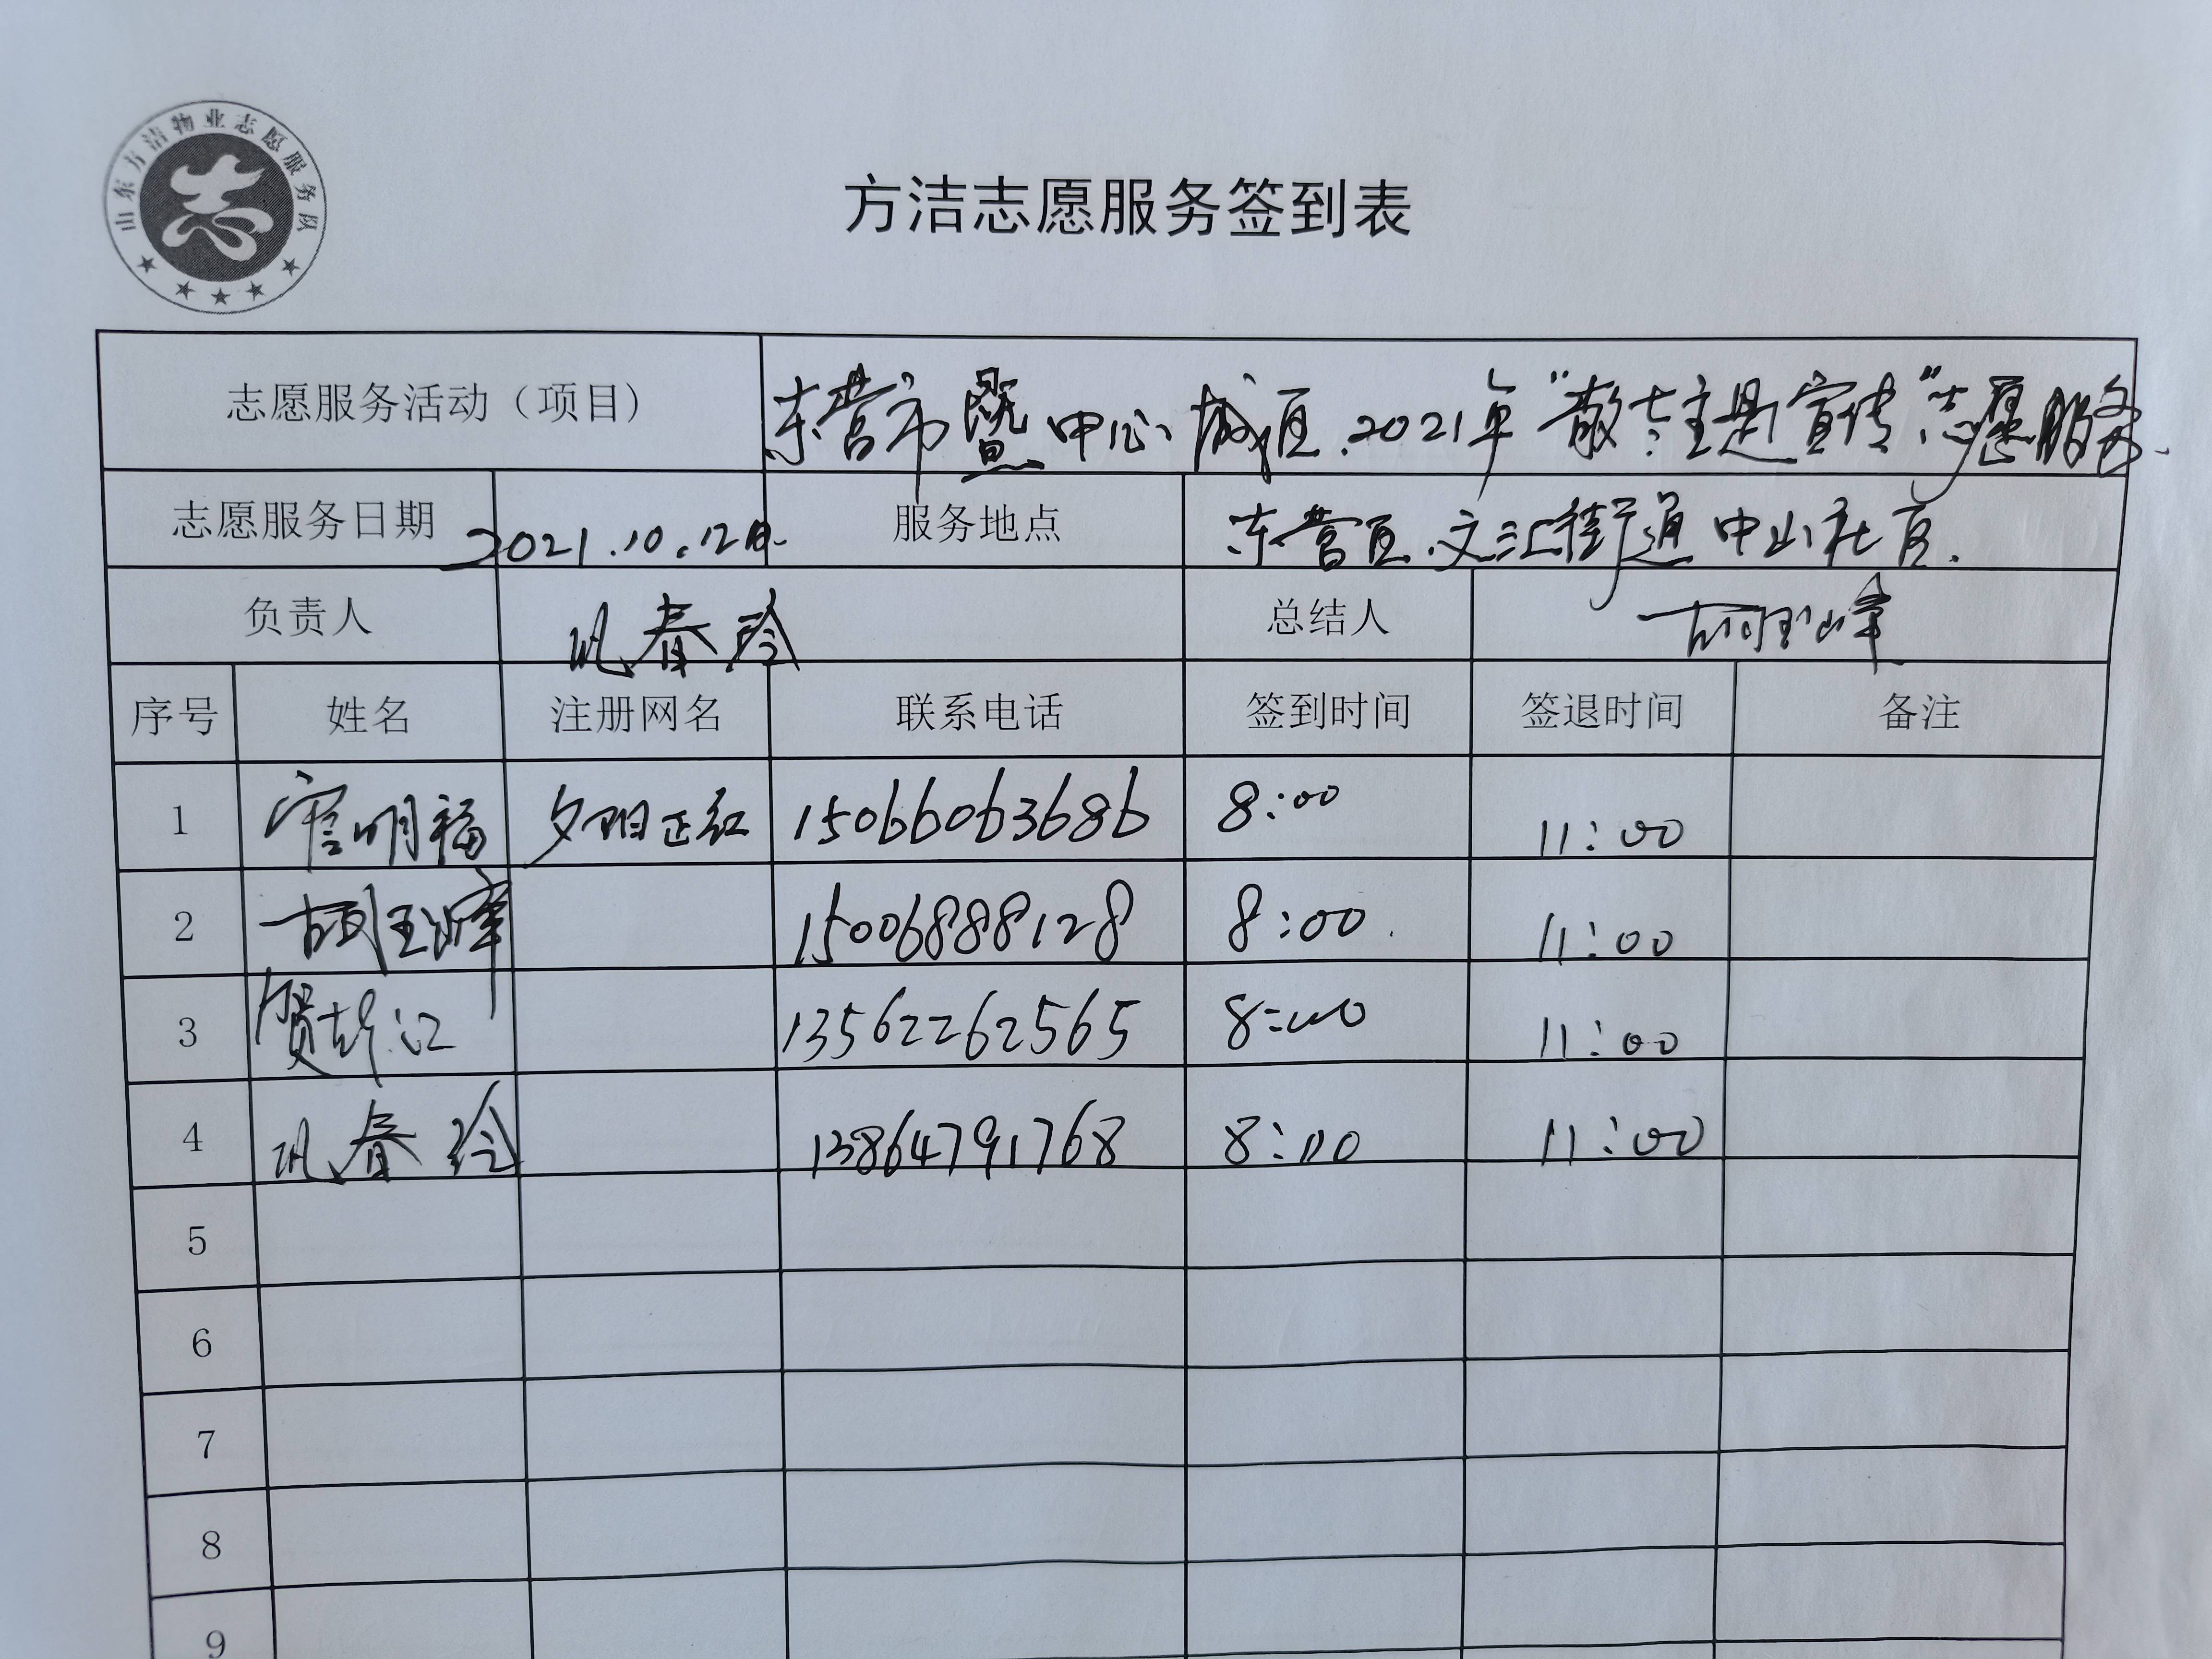 山东方洁物业志愿服务队
方洁志愿服务签到表
志愿服务活动（项目） 东营市暨中心城区.2021年"敬老主题宣传"志愿服务.
志愿服务日期 2021.10.12日. 服务地点 东营区.文汇街道中山社区.
负责人 巩春玲 总结人 胡玉峰
序号 姓名 注册网名 联系电话 签到时间 签退时间 备注
1 明福 夕阳正红 15066063686 8:00 11:00
2 胡玉峰 15006888128 8:00. 11:00
3 贺 江 13562262565 8:00 11:00
4 巩春玲 13864791768 8:00 11:00
5
6
7
8
9